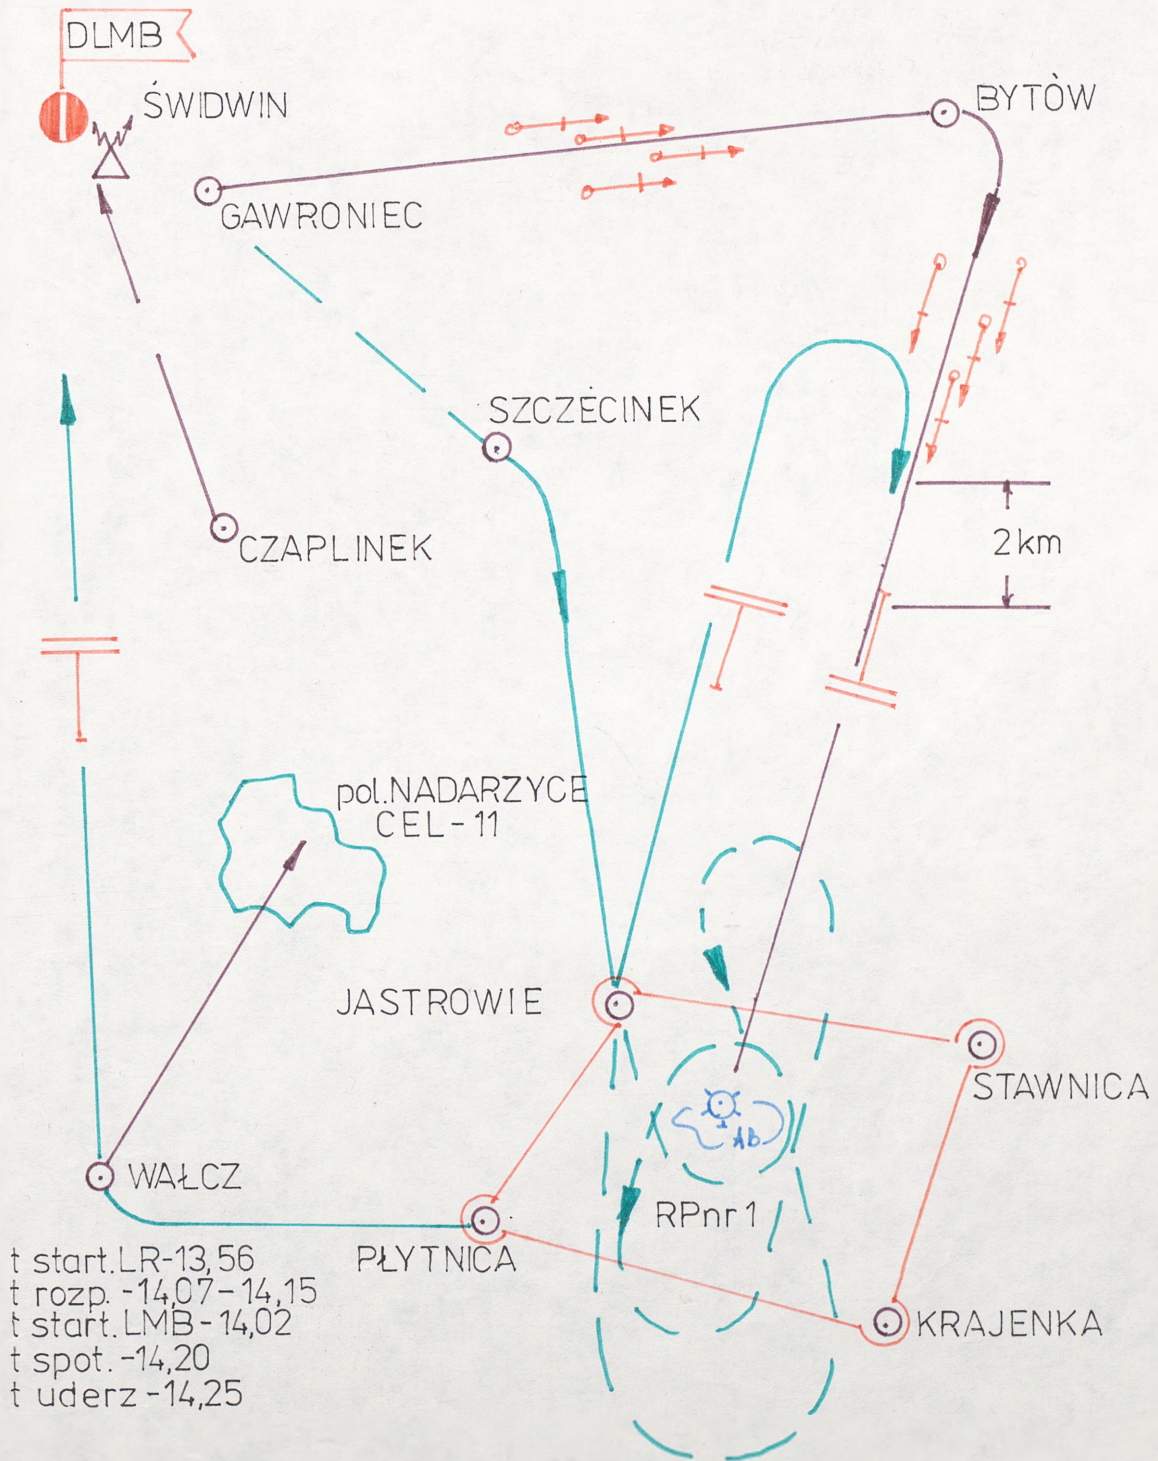 DLMB
ŚWIDWIN
BYTÒW
GAWRONIEC
SZCZECINEK
CZAPLINEK
2km
pol.NADARZYCE
CEL-11
JASTROWIE
STAWNICA
AB
WAŁCZ
RPnr1
PŁYTNICA
KRAJENKA
t start.LR-13,56
t rozp.-14,07-14,15
t start.LMB-14,02
t spot.-14,20
t uderz-14,25